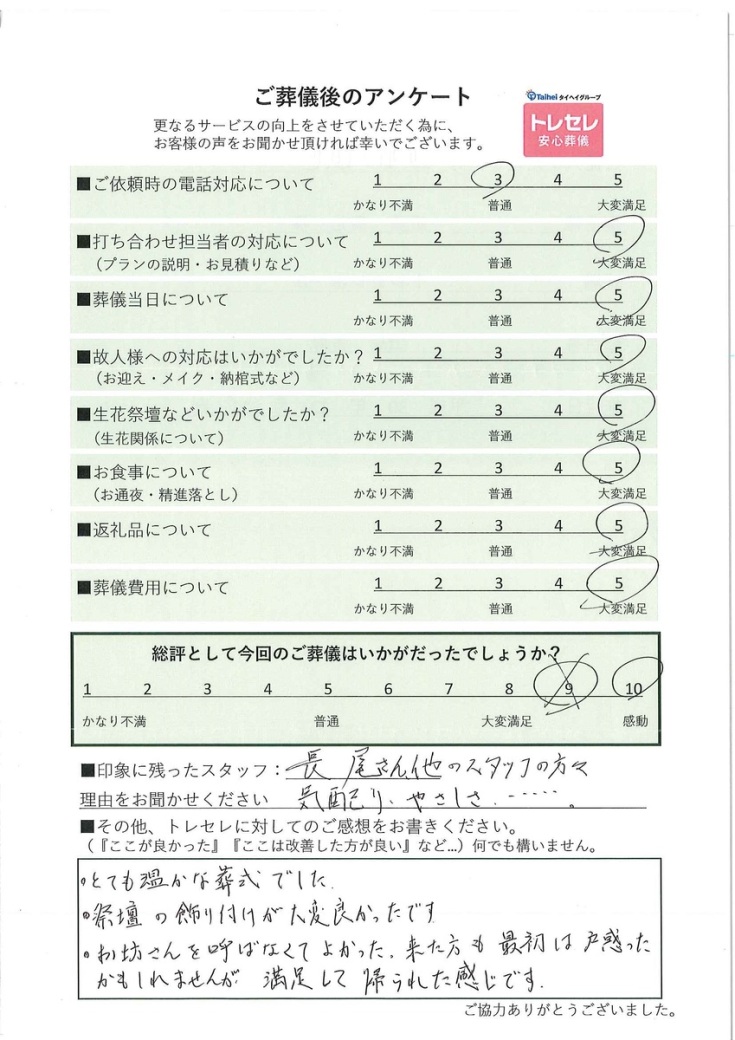 ご葬儀後のアンケート
Taihei タイヘイグループ
トレセレ
安心葬儀
更なるサービスの向上をさせていただく為に、
お客様の声をお聞かせ頂ければ幸いでございます。
■ご依頼時の電話対応について 1 2 3 4 5
かなり不満 普通 大変満足
■打ち合わせ担当者の対応について 1 2 3 4 5
（プランの説明・お見積りなど） かなり不満 普通 大変満足
■葬儀当日について 1 2 3 4 5
かなり不満 普通 大変満足
■故人様への対応はいかがでしたか？ 1 2 3 4 5
（お迎え・メイク・納棺式など） かなり不満 普通 大変満足
■生花祭壇などいかがでしたか？ 1 2 3 4 5
（生花関係について） かなり不満 普通 大変満足
■お食事について 1 2 3 4 5
（お通夜・精進落とし） かなり不満 普通 大変満足
■返礼品について 1 2 3 4 5
かなり不満 普通 大変満足
■葬儀費用について 1 2 3 4 5
かなり不満 普通 大変満足
総評として今回のご葬儀はいかがだったでしょうか？
1 2 3 4 5 6 7 8 9 10
かなり不満 普通 大変満足 感動
■印象に残ったスタッフ：長尾さん他のスタッフの方々
理由をお聞かせください 気配り、やさしさ．‐‐‐‐‐。
■その他、トレセレに対してのご感想をお書きください。
（『ここが良かった』『ここは改善した方が良い』など…）何でも構いません。
・とても温かな葬式でした．
・祭壇の飾り付けが大変良かったです
・お坊さんを呼ばなくてよかった．来た方も最初は戸惑った
かもしれませんが 満足して帰られた感じです．
ご協力ありがとうございました。